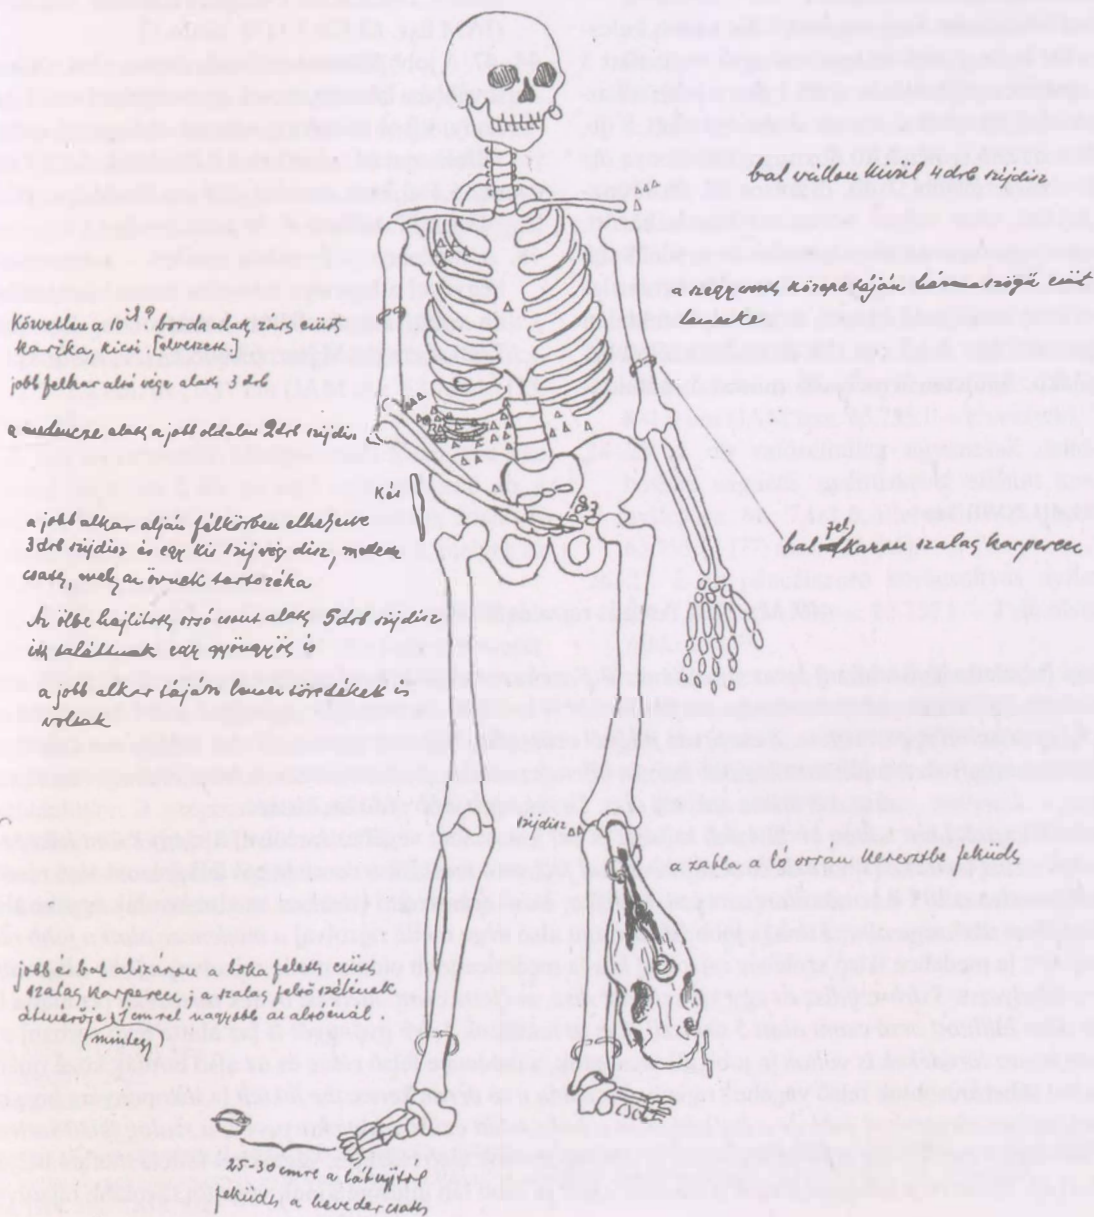 bal vállon kívül 4 drb szíjdísz
a szegycsont közepetáján háromszögű ezüst
lemezke
Közvetlen a 10 ik? borda alatt zárt ezüst
karika, kicsi [elveszett]
jobb felkar alsó vége alatt 3 drb
a medencze alatt a jobb oldalon 2 drb szíjdísz
Kés
a jobb alkar alján félkörben elhelyezve
3 drb szíjdísz és egy kis szíjvég dísz, mellette
csatt, mely az övnek tartozéka
Az ölbe hajlított orsó csont alatt 5 drb szíjdísz
itt találtunk egy gyöngyöt is
a jobb alkar táján lemez töredékek is
voltak
bal alkaron szalag karperec
szíjdísz
szabla a ló orrán keresztbe feküdt
jobb és bal alszáron a boka felett ezüst
szalag karperec, a szalag felső szélének
átmérője 1 cm rel nagyobb az alsóénál.
mindég
25-30 cm re a lábujjtól
feküdt a heveder csatt